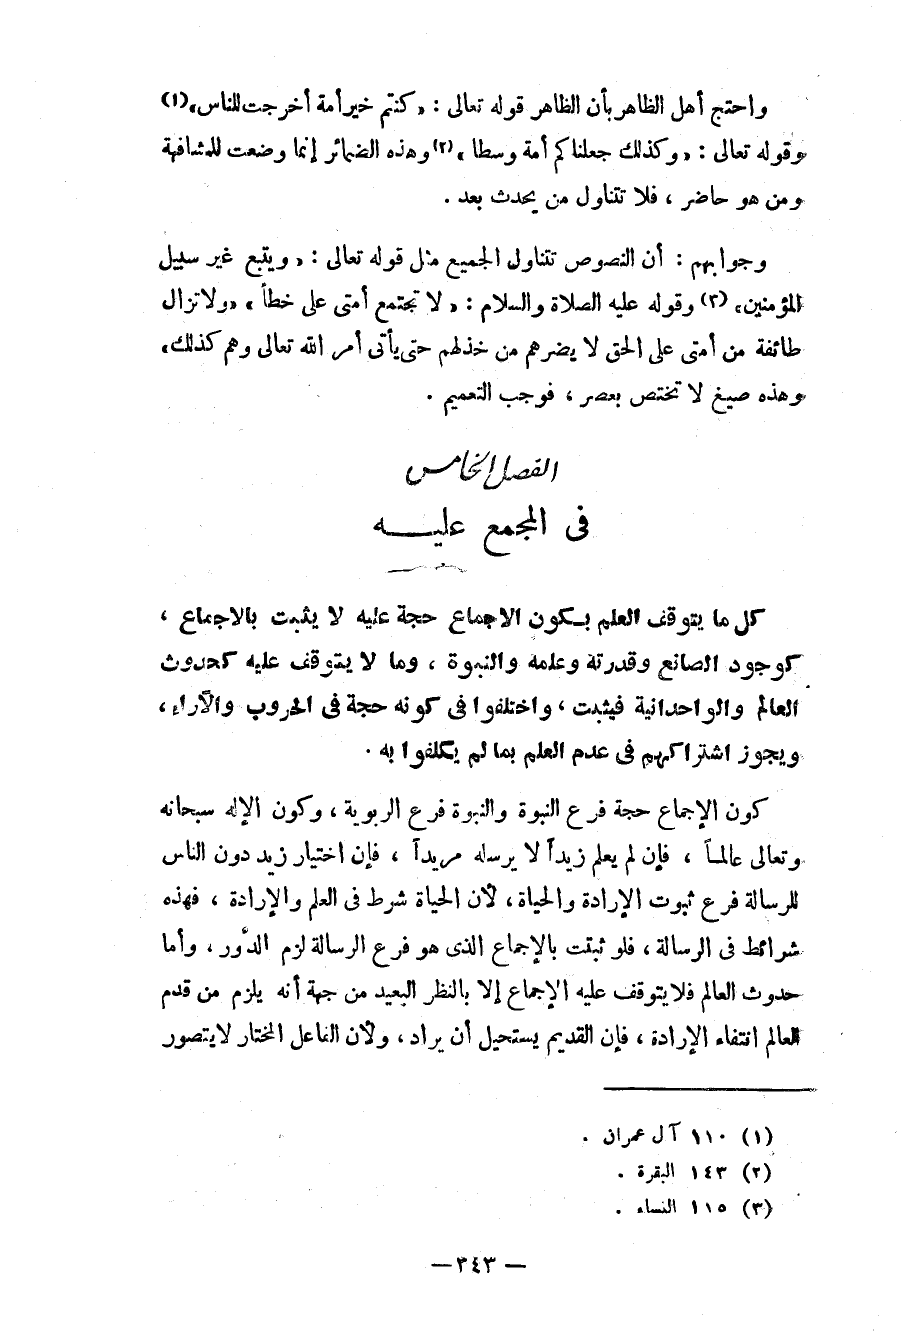 واحتج أهل الظاهر بأن الظاهر قوله تعالى : « كنتم خير أمة أخرجت للناس »(١)
وقوله تعالى : « وكذلك جعلناكم أمة وسطا »(٢) وهذه الضمائر إنما وضعت للمشافهة
ومن هو حاضر ، فلا تتناول من يحدث بعد .
وجوابهم : أن النصوص تتناول الجميع مثل قوله تعالى : « ويتبع غير سبيل
المؤمنين » (٣) وقوله عليه الصلاة والسلام : « لا تجتمع أمتى على خطأ » « ولا تزال
طائفة من أمتى على الحق لا يضرهم من خذلهم حتى يأتى أمر الله تعالى وهم كذلك »
وهذه صيغ لا تختص بعصر ، فوجب التعميم .
الفصل الخامس
فى المجمع عليه
كل ما يتوقف العلم بكون الاجماع حجة عليه لا يثبت بالاجماع ،
كوجود الصانع وقدرته وعلمه والنبوة ، وما لا يتوقف عليه كحدوث
العالم والواحدانية فيثبت ، واختلفوا فى كونه حجة فى الحروب والآراء ،
ويجوز اشتراكهم فى عدم العلم بما لم يكلفوا به .
كون الإجماع حجة فرع النبوة والنبوة فرع الربوبية ، وكون الإله سبحانه
وتعالى عالماً ، فإن لم يعلم زيداً لا يرسله مريداً ، فإن اختيار زيد دون الناس
للرسالة فرع ثبوت الإرادة والحياة ، لأن الحياة شرط فى العلم والإرادة ، فهذه
شرائط فى الرسالة ، فلو ثبتت بالإجماع الذى هو فرع الرسالة لزم الدَّور ، وأما
حدوث العالم فلا يتوقف عليه الإجماع إلا بالنظر البعيد من جهة أنه يلزم من قدم
العالم انتفاء الإرادة ، فإن القديم يستحيل أن يراد ، ولأن الفاعل المختار لا يتصور
(١) ١١٠ آل عمران .
(٢) ١٤٣ البقرة .
(٣) ١١٥ النساء .
— ٣٤٣ —